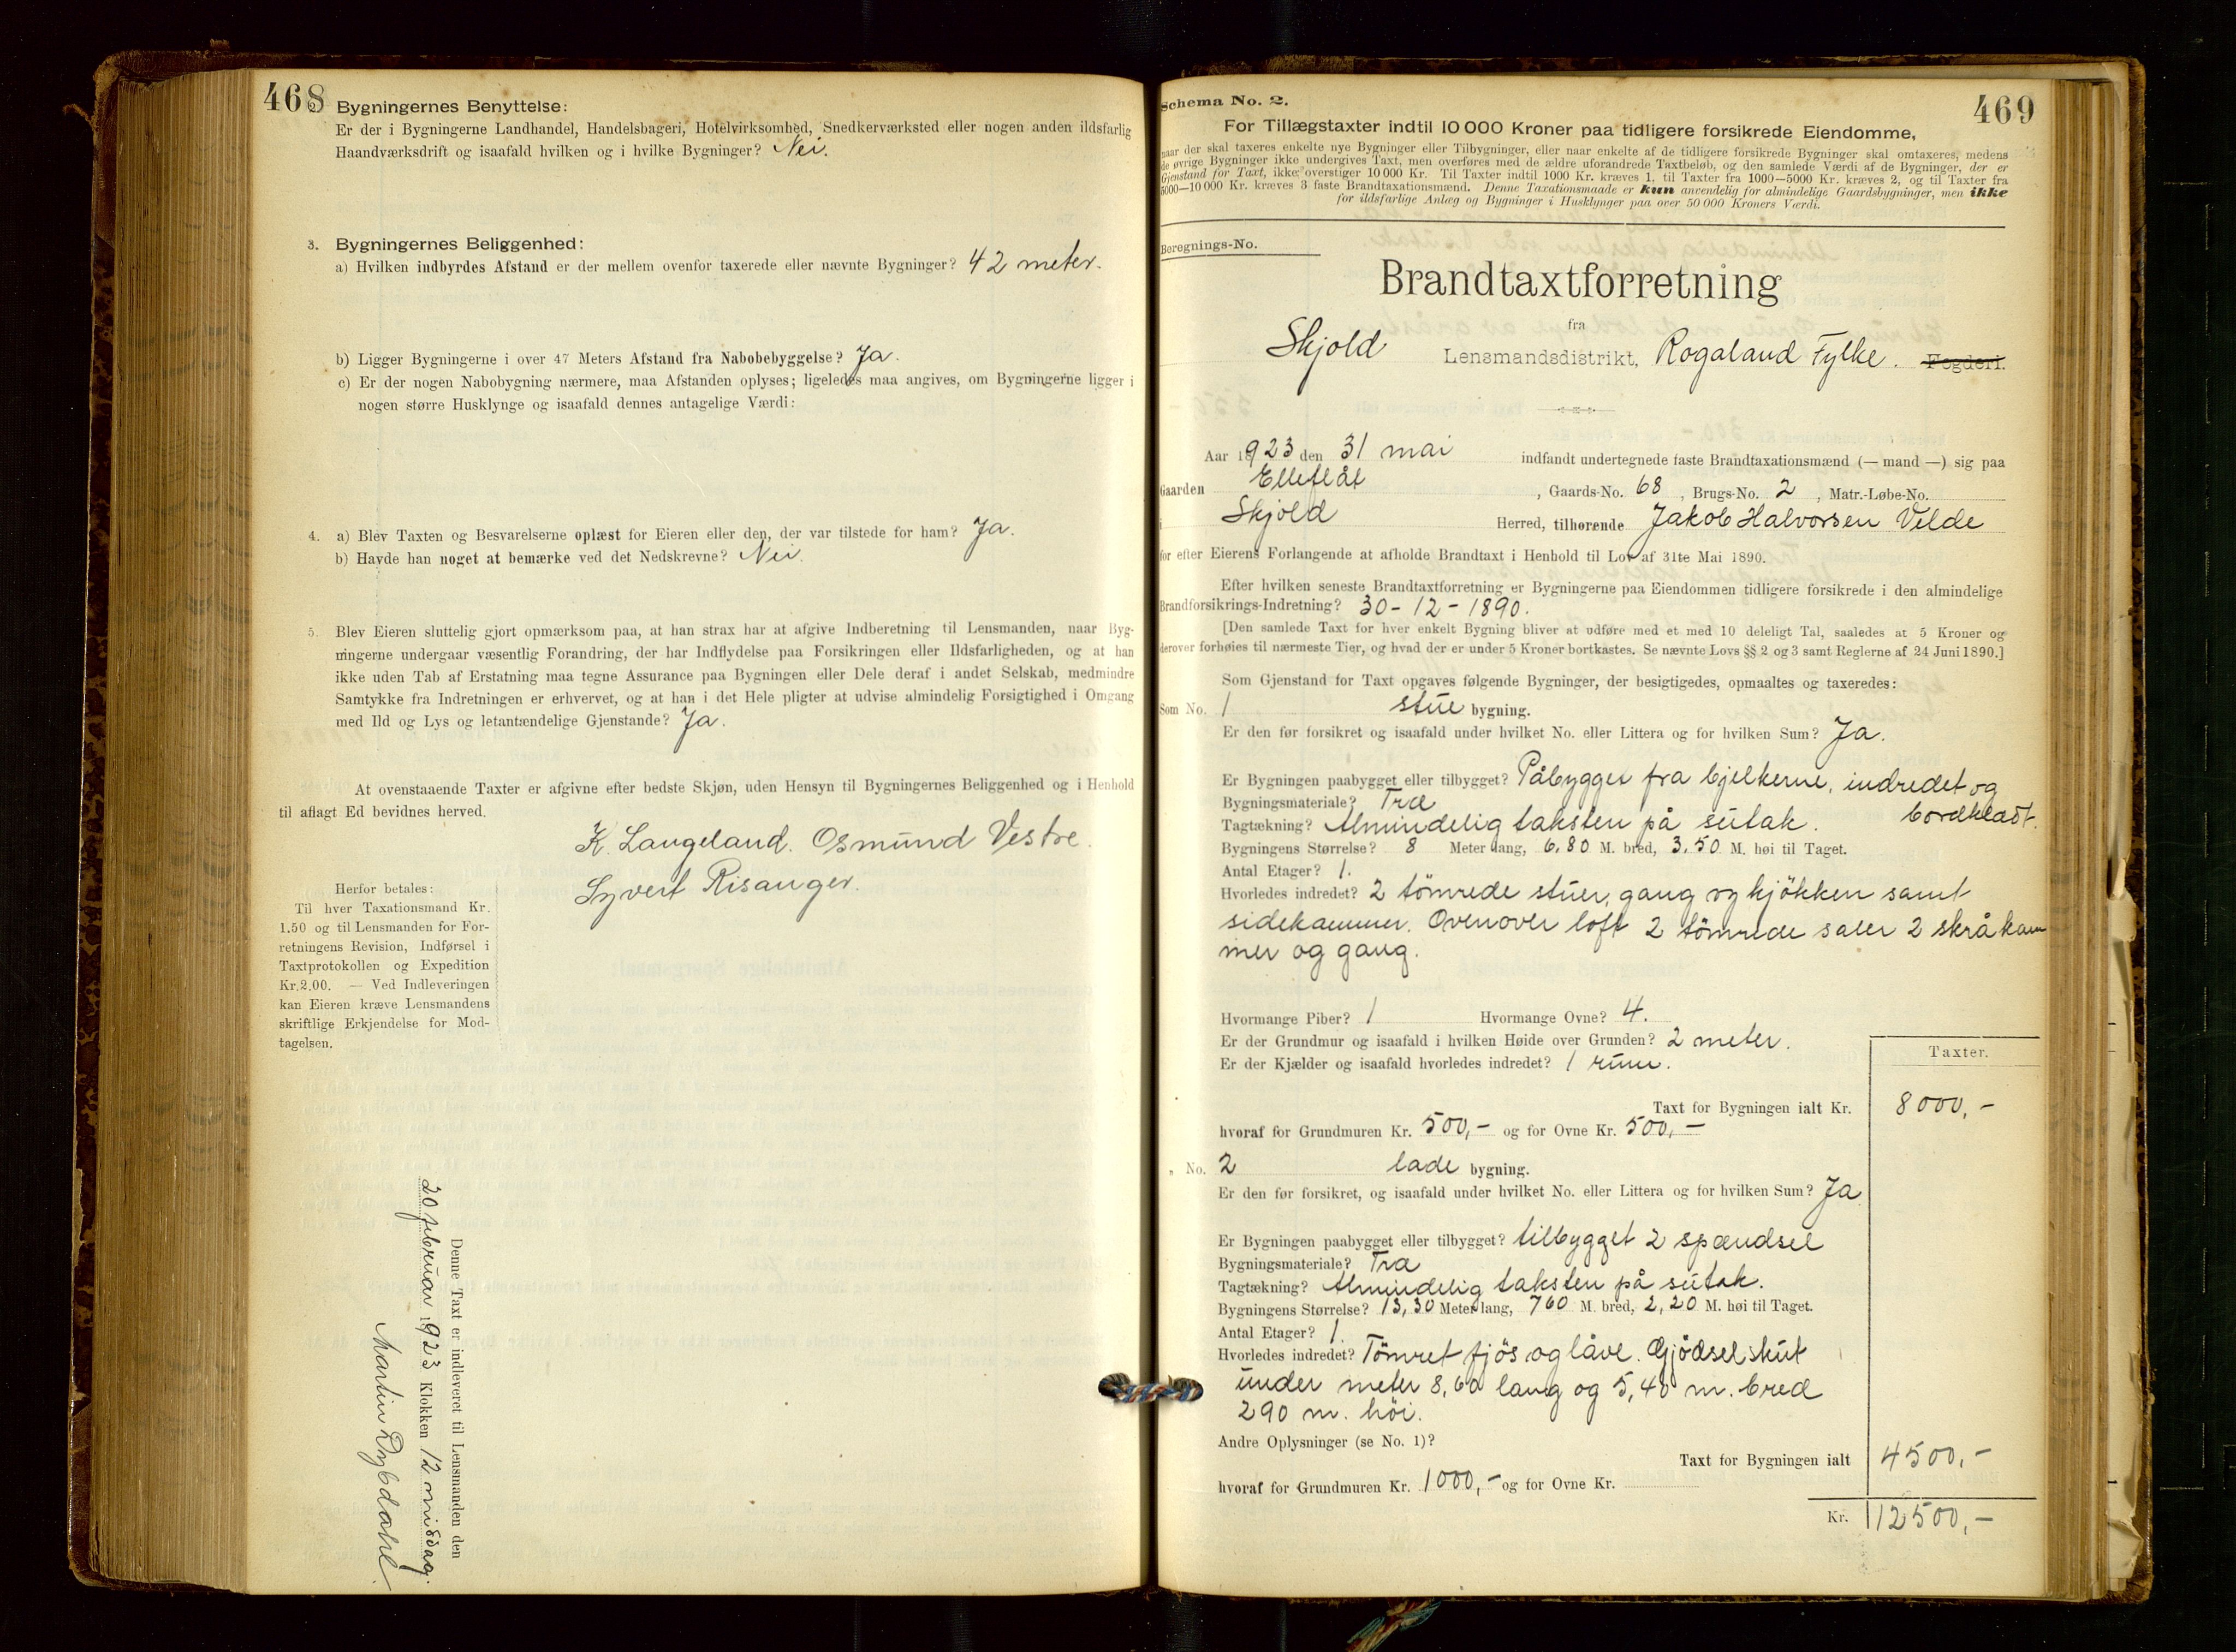 468
2. Bygningernes Benyttelse:
Er der i Bygningerne Landhandel, Handelsbageri, Hotelvirksomhed, Snedkerværksted eller nogen anden ildsfarlig
Haandværksdrift og isaafald hvilken og i hvilke Bygninger? Nei.
3. Bygningernes Beliggenhed:
a) Hvilken indbyrdes Afstand er der mellem ovenfor taxerede eller nævnte Bygninger? 42 meter.
b) Ligger Bygningerne i over 47 Meters Afstand fra Nabobebyggelse? Ja.
c) Er der nogen Nabobygning nærmere, maa Afstanden oplyses; ligeledes maa angives, om Bygningerne ligger i
nogen større Husklynge og isaafald dennes antagelige Værdi:
4. a) Blev Taxten og Besvarelserne oplæst for Eieren eller den, der var tilstede for ham? Ja.
b) Havde han noget at bemærke ved det Nedskrevne? Nei.
5. Blev Eieren sluttelig gjort opmærksom paa, at han strax har at afgive Indberetning til Lensmanden, naar Byg-
ningerne undergaar væsentlig Forandring, der har Indflydelse paa Forsikringen eller Ildsfarligheden, og at han
ikke uden Tab af Erstatning maa tegne Assurance paa Bygningen eller Dele deraf i andet Selskab, medmindre
Samtykke fra Indretningen er erhvervet, og at han i det Hele pligter at udvise almindelig Forsigtighed i Omgang
med Ild og Lys og letantændelige Gjenstande? Ja.
At ovenstaaende Taxter er afgivne efter bedste Skjøn, uden Hensyn til Bygningernes Beliggenhed og i Henhold
til aflagt Ed bevidnes herved.
K. Langeland. Osmund Vestre.
Syvert Risanger.
Herfor betales:
Til hver Taxationsmand Kr.
1.50 og til Lensmanden for For-
retningens Revision, Indførsel i
Taxtprotokollen og Expedition
Kr. 2.00. — Ved Indleveringen
kan Eieren kræve Lensmandens
skriftlige Erkjendelse for Mod-
tagelsen.
Denne Taxt er indleveret til Lensmanden den
20 februar 1923 Klokken 12 middag.
Martin Dybdahl.
469
Schema No. 2.
For Tillægstaxter indtil 10 000 Kroner paa tidligere forsikrede Eiendomme,
naar der skal taxeres enkelte nye Bygninger eller Tilbygninger, eller naar enkelte af de tidligere forsikrede Bygninger skal omtaxeres, medens
de øvrige Bygninger ikke undergives Taxt, men overføres med de ældre uforandrede Taxtbeløb, og den samlede Værdi af de Bygninger, der er
Gjenstand for Taxt, ikke overstiger 10 000 Kr. Til Taxter indtil 1000 Kr. kræves 1, til Taxter fra 1000—5000 Kr. kræves 2, og til Taxter fra
5000—10 000 Kr. kræves 3 faste Brandtaxationsmænd. Denne Taxationsmaade er kun anvendelig for almindelige Gaardsbygninger, men ikke
for ildsfarlige Anlæg og Bygninger i Husklynger paa over 50 000 Kroners Værdi.
Beregnings-No.
Brandtaxtforretning
fra
Skjold Lensmandsdistrikt, Rogaland Fylke. Fogderi.
Aar 1923 den 31 mai indfandt undertegnede faste Brandtaxationsmænd (— mand —) sig paa
Gaarden Elleflåt, Gaards-No. 68, Brugs-No. 2, Matr.-Løbe-No.
i Skjold Herred, tilhørende Jakob Halvorsen Velde
for efter Eierens Forlangende at afholde Brandtaxt i Henhold til Lov af 31te Mai 1890.
Efter hvilken seneste Brandtaxtforretning er Bygningerne paa Eiendommen tidligere forsikrede i den almindelige
Brandforsikrings-Indretning? 30-12-1890.
[Den samlede Taxt for hver enkelt Bygning bliver at udføre med et med 10 deleligt Tal, saaledes at 5 Kroner og
derover forhøies til nærmeste Tier, og hvad der er under 5 Kroner bortkastes. Se nævnte Lovs §§ 2 og 3 samt Reglerne af 24 Juni 1890.]
Som Gjenstand for Taxt opgaves følgende Bygninger, der besigtigedes, opmaaltes og taxeredes:
Som No. 1 stue bygning.
Er den før forsikret og isaafald under hvilket No. eller Littera og for hvilken Sum? Ja.
Er Bygningen paabygget eller tilbygget? Påbygget fra bjelkerne, indredet og
bordklædt.
Bygningsmateriale? Træ
Tagtækning? Almindelig taksten på sutak.
Bygningens Størrelse? 8 Meter lang, 6,80 M. bred, 3,50 M. høi til Taget.
Antal Etager? 1.
Hvorledes indredet? 2 tömrede stuer, gang og kjökken samt
sidekammer. Ovenover loft 2 tömrede saler 2 skråkam
mer og gang.
Hvormange Piber? 1 Hvormange Ovne? 4.
Er der Grundmur og isaafald i hvilken Høide over Grunden? 2 meter.
Er der Kjælder og isaafald hvorledes indredet? 1 rum.
Taxter.
Taxt for Bygningen ialt Kr. 8000,-
hvoraf for Grundmuren Kr. 500,- og for Ovne Kr. 500,-
" No. 2 lade bygning.
Er den før forsikret, og isaafald under hvilket No. eller Littera og for hvilken Sum? Ja
Er Bygningen paabygget eller tilbygget? tilbygget 2 spændsel
Bygningsmateriale? Træ
Tagtækning? Almindelig taksten på sutak.
Bygningens Størrelse? 13,30 Meter lang, 760 M. bred, 2,20 M. høi til Taget.
Antal Etager? 1.
Hvorledes indredet? Tömret fjös og låve. Gjödselskut
under meter 8,60 lang og 5,40 m. bred
290 m. höi.
Andre Oplysninger (se No. 1)?
Taxt for Bygningen ialt 4500,-
hvoraf for Grundmuren Kr. 1000,- og for Ovne Kr.
Kr. 12500,-